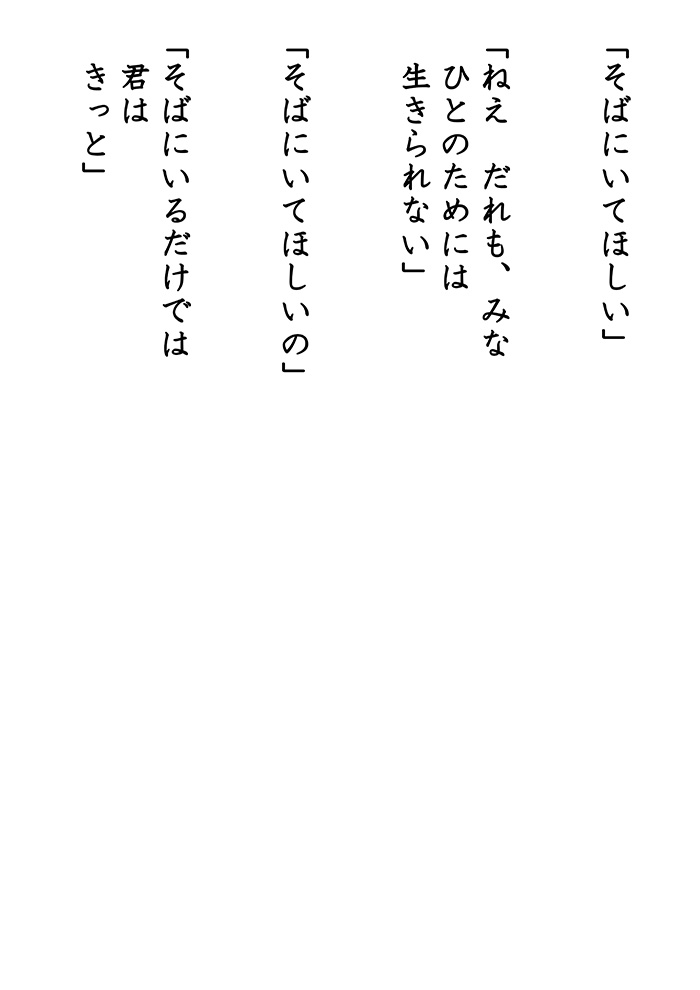 「そばにいてほしい」
「ねえ　だれも、みな
ひとのためには
生きられない」
「そばにいてほしいの」
「そばにいるだけでは
君は
きっと」